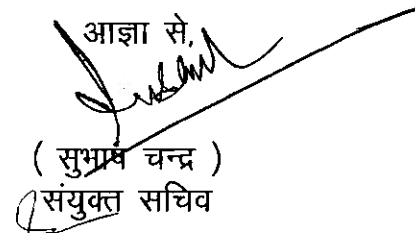 आज्ञा से,
( सुभाष चन्द्र )
संयुक्त सचिव